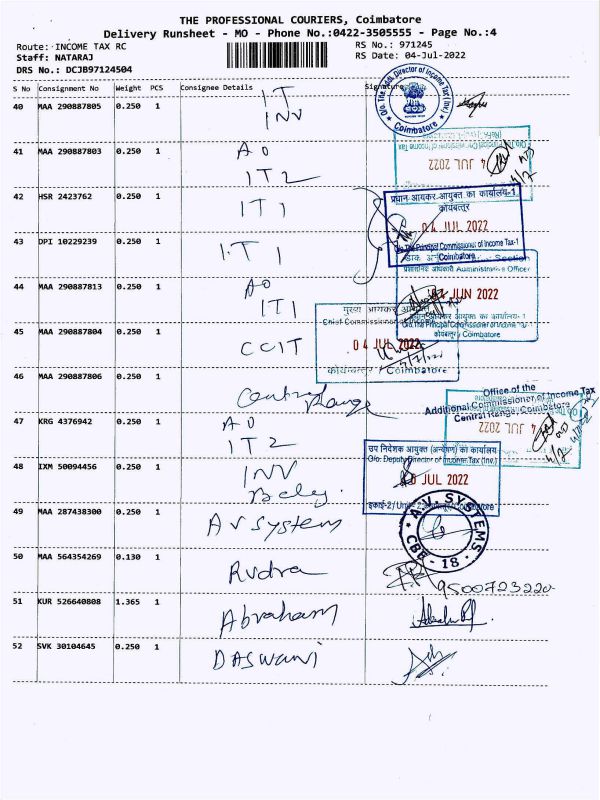 THE PROFESSIONAL COURIERS, Coimbatore
Delivery Runsheet - MO - Phone No.:0422-3505555 - Page No.:4
Route: INCOME TAX RC
RS No.: 971245
Staff: NATARAJ
RS Date: 04-Jul-2022
DRS No.: DCJB97124504
S No Consignment No Weight PCS Consignee Details Signature
40 MAA 290887805 0.250 1 IT
INV
O/o. The Addl. Director of Income Tax (Inv)
Coimbatore
41 MAA 290887803 0.250 1 AO
IT 2
4 JUL 2022
42 HSR 2423762 0.250 1 IT 1
प्रधान आयकर आयुक्त का कार्यालय-1
कोयंबत्तूर
04 JUL 2022
O/o. The Principal Commissioner of Income Tax-1
Coimbatore
43 DPI 10229239 0.250 1 I.T 1
Section
प्रशासनिक अधिकारी Administrative Officer
44 MAA 290887813 0.250 1 AO
IT 1
04 JUN 2022
प्रधान आयकर आयुक्त का कार्यालय-1
O/o. The Principal Commissioner of Income Tax
कोयंबत्तूर / Coimbatore
45 MAA 290887804 0.250 1 CCIT
मुख्य आयकर आयुक्त
Chief Commissioner of Income
04 JUL 2022
4/7/22
Coimbatore
46 MAA 290887806 0.250 1 Central
Range
Office of the
Additional Commissioner of Income Tax
Central Range, Coimbatore
47 KRG 4376942 0.250 1 AO
IT 2
4 JUL 2022
48 IXM 50094456 0.250 1 INV
उप निदेशक आयुक्त (अन्वेषण) का कार्यालय
O/o. Deputy Director of Income Tax (Inv.)
JUL 2022
इकाई-2 / Unit-2, Coimbatore
49 MAA 287438300 0.250 1 AV System
A.V. SYSTEMS
CBE - 18
50 MAA 564354269 0.130 1 Rudra
9500723220
51 KUR 526640808 1.365 1 Abraham
52 SVK 30104645 0.250 1 DASWANI